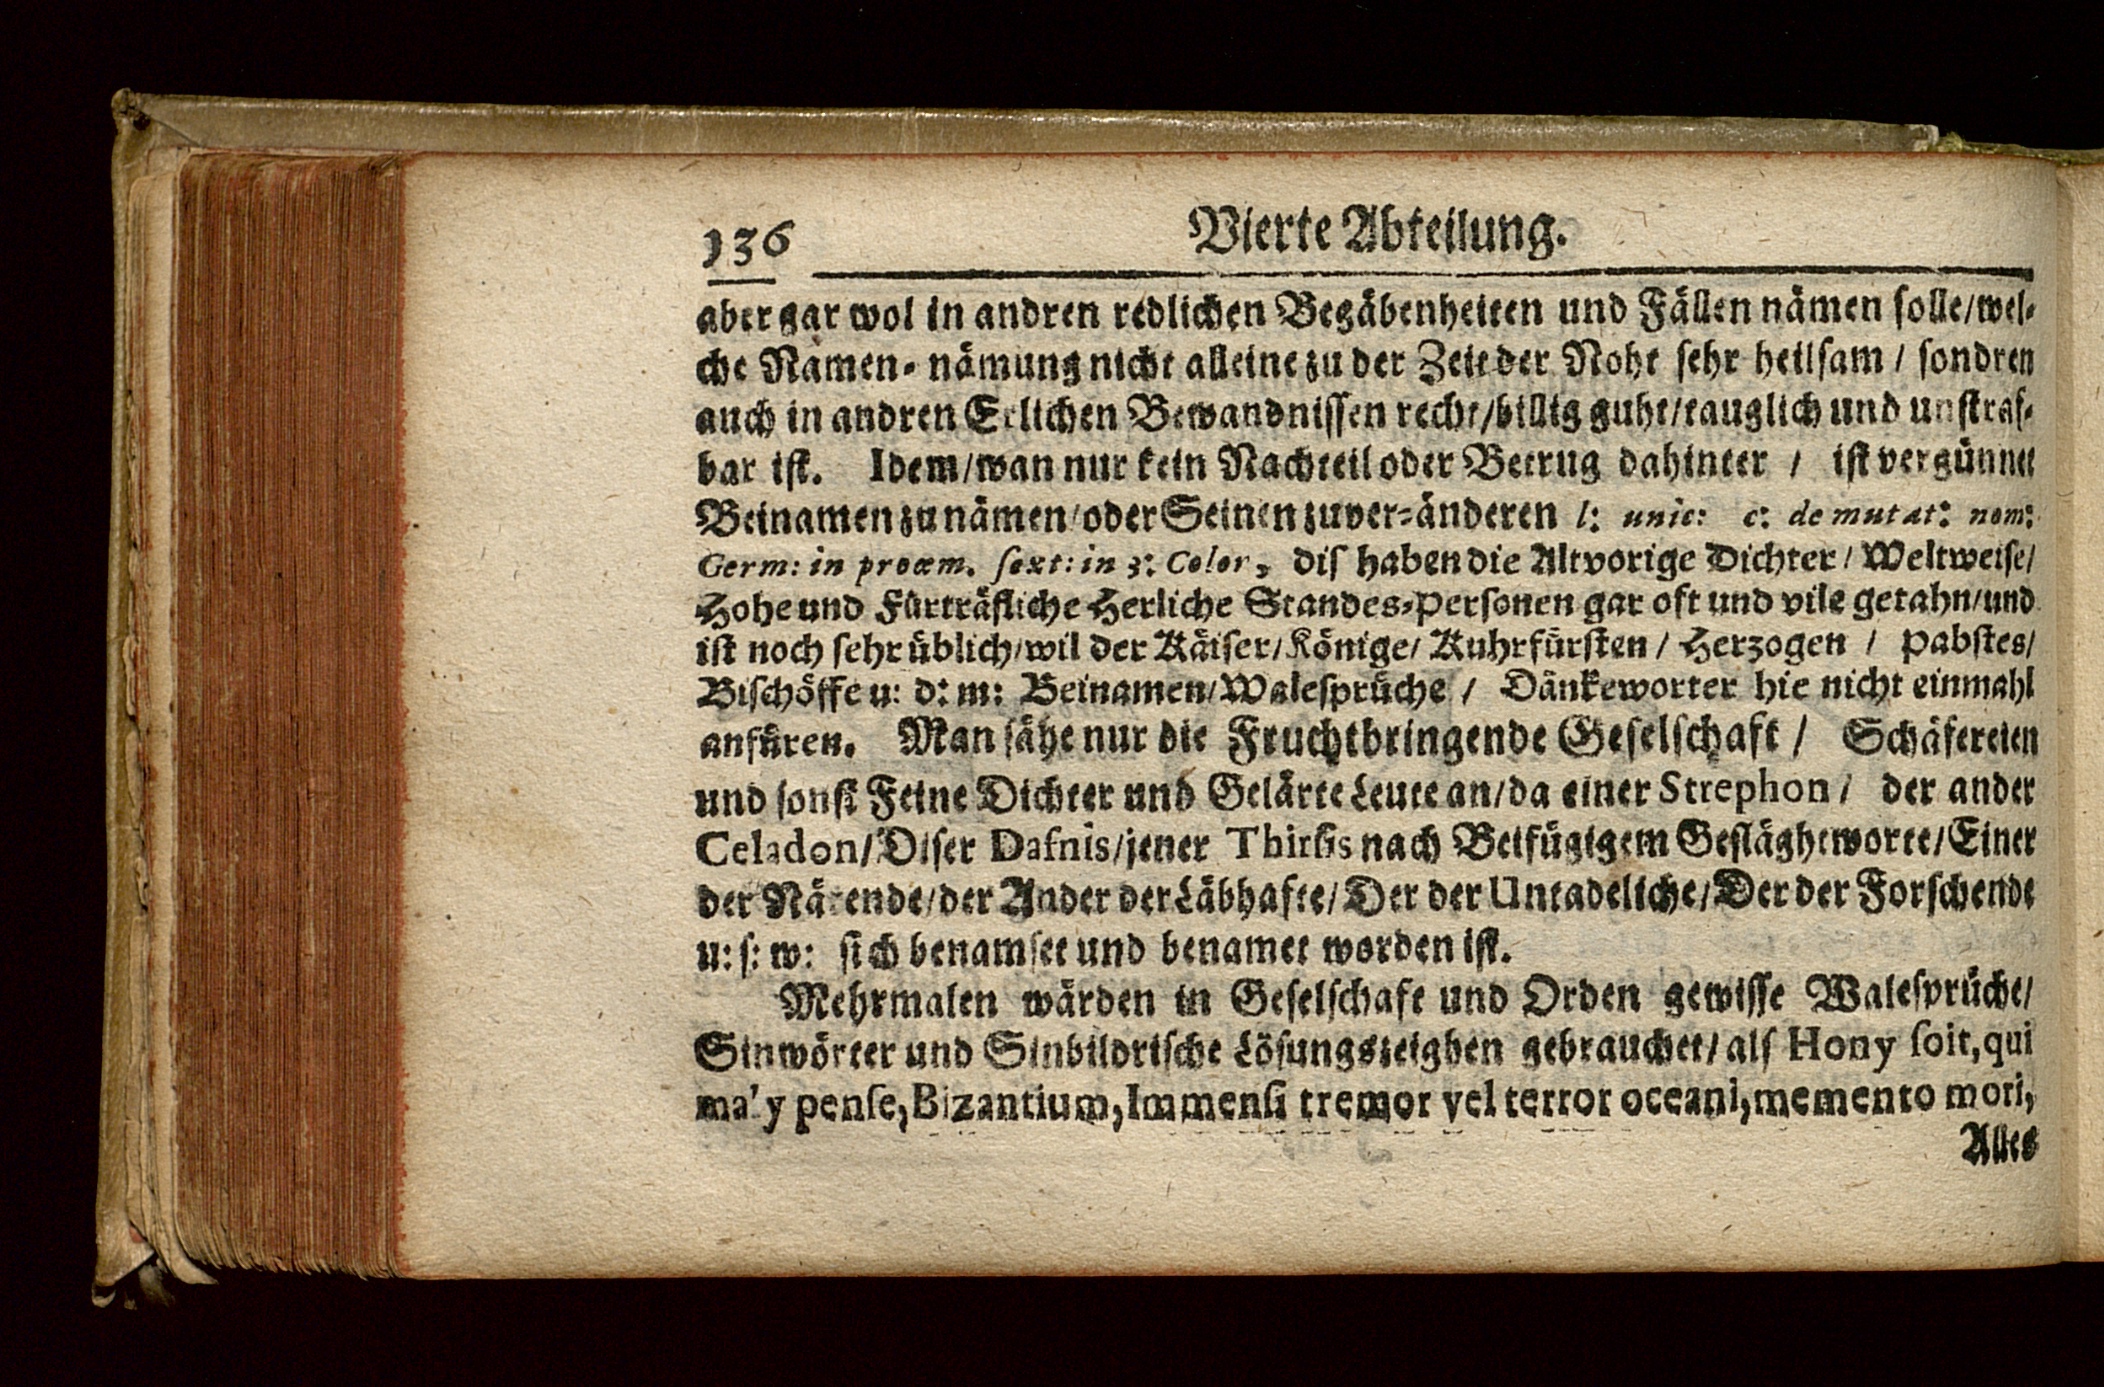 136 Vierte Abteilung.
aber gar wol in andren redlichen Begäbenheiten und Fällen nämen solle/wel-
che Namen-nämung nicht alleine zu der Zeit der Noht sehr heilsam / sondren
auch in andren Erlichen Bewandnissen recht/billig guht/tauglich und unstraf-
bar ist. Idem/wan nur kein Nachteil oder Betrug dahinter / ist vergünnet
Beinamen zu nämen/oder Seinen zuver-änderen l: unic: c: de mutat: nom:
Germ: in proœm. sext: in 3: Color, diſ haben die Altvorige Dichter/ Weltweise/
Hohe und Fürträfliche Herliche Standes-Personen gar oft und vile getahn/und
ist noch sehr üblich/wil der Käiser/Könige/ Kuhrfürsten / Herzogen / Pabstes/
Bischöffe u: d: m: Beinamen/Walesprüche / Dänkeworter hie nicht einmahl
anfüren. Man sähe nur die Fruchtbringende Geselschaft / Schäfereien
und sonst Feine Dichter und Gelärte Leute an/da einer Strephon / der ander
Celadon/Diser Dafnis/jener Thirsis nach Beifügigem Gesläghtworte/Einer
der Närende/der Ander der Läbhafte/Der der Untadeliche/Der der Forschende
u: s: w: sich benamset und benamet worden ist.
Mehrmalen wärden in Geselschaft und Orden gewisse Walesprüche/
Sinwörter und Sinbildrische Lösungszeighen gebrauchet/ alſ Hony soit, qui
ma'y pense, Bizantium, Immensi tremor vel terror oceani, memento mori,
Alles